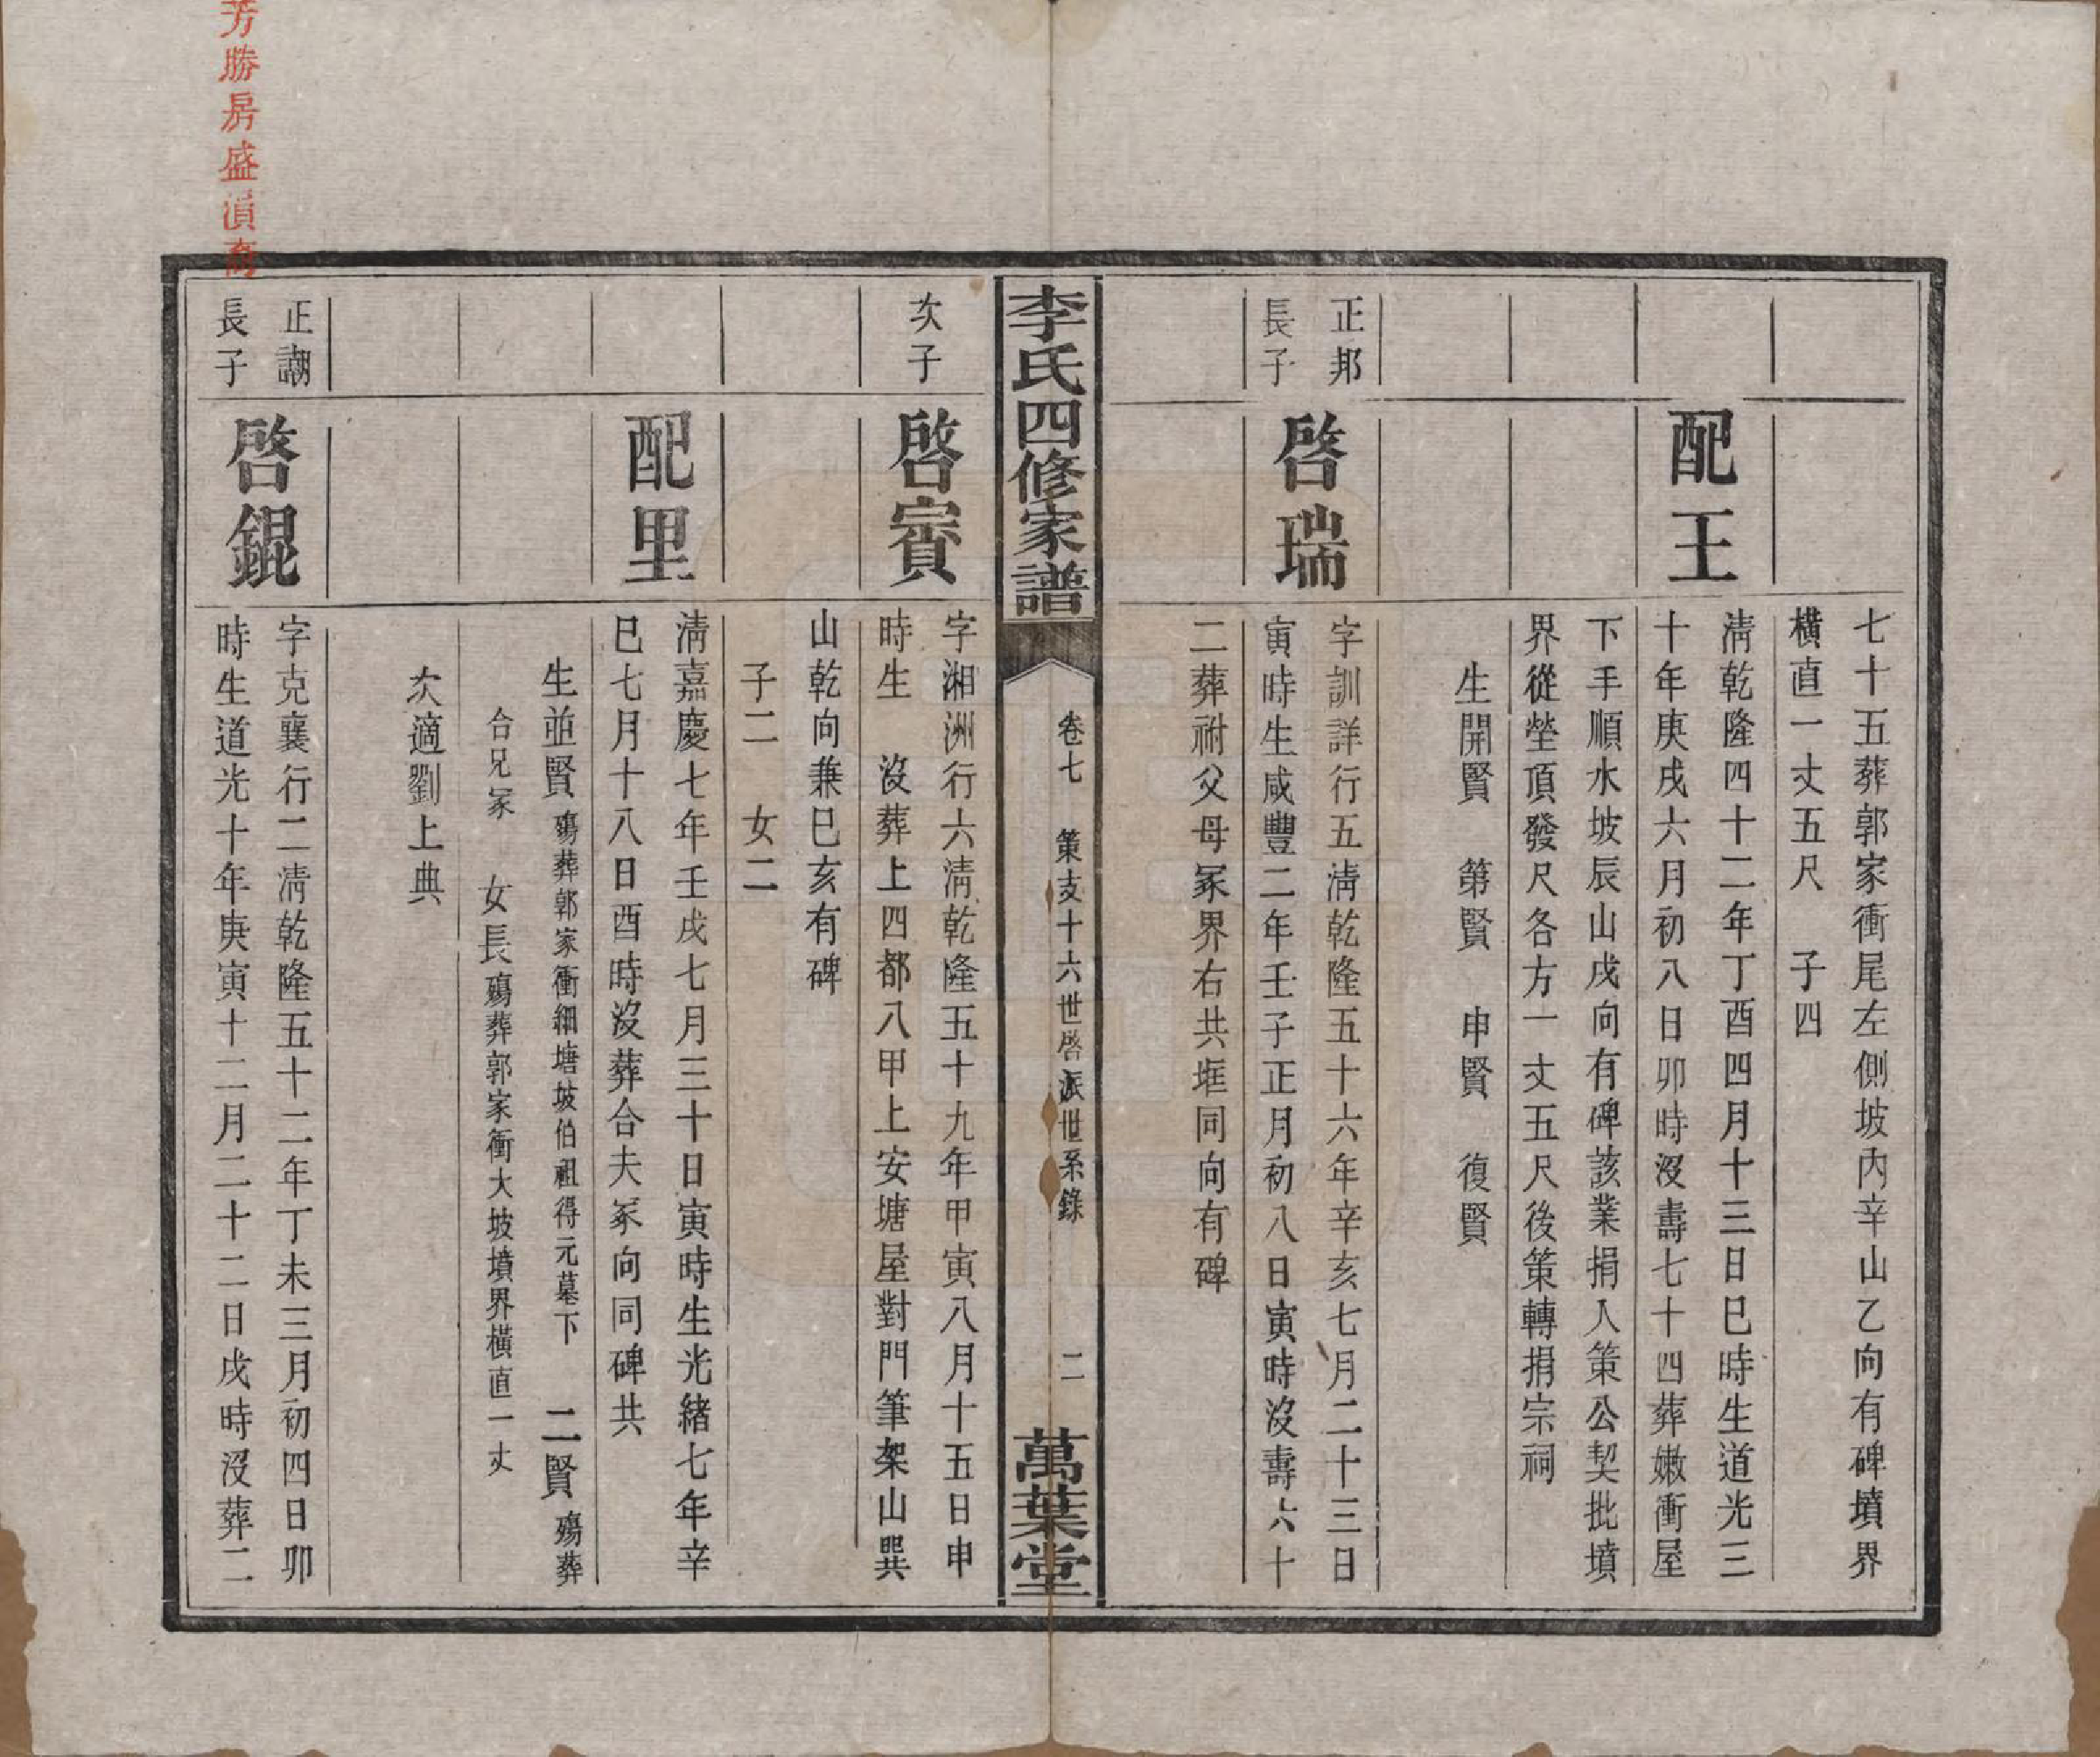 七十五葬郭家衝尾左側坡內辛山乙向有碑墳界
橫直一丈五尺　子四
配王
清乾隆四十二年丁酉四月十三日巳時生道光三
十年庚戌六月初八日卯時沒壽七十四葬嫩衝屋
下手順水坡辰山戌向有碑該業捐入策公契批墳
界從塋頂發尺各方一丈五尺後策轉捐宗祠
生開賢　第賢　申賢　復賢
正邦
長子
啓瑞
字訓詳行五清乾隆五十六年辛亥七月二十三日
寅時生咸豐二年壬子正月初八日寅時沒壽六十
二葬祔父母冢界右共堆同向有碑
李氏四修家譜
卷七　策支十六世啓派世系錄　二
萬葉堂
次子
啓賓
字湘洲行六清乾隆五十九年甲寅八月十五日申
時生　沒葬上四都八甲上安塘屋對門筆架山巽
山乾向兼巳亥有碑
子二　女二
配里
清嘉慶七年壬戌七月三十日寅時生光緒七年辛
巳七月十八日酉時沒葬合夫冢向同碑共
生並賢殤葬郭家衝細塘坡伯祖得元墓下　二賢殤葬
合兄冢　女長殤葬郭家衝大坡墳界橫直一丈
次適劉上典
正謿
長子
啓錕
字克襄行二清乾隆五十二年丁未三月初四日卯
時生道光十年庚寅十二月二十二日戌時沒葬二
芳勝房盛湏裔